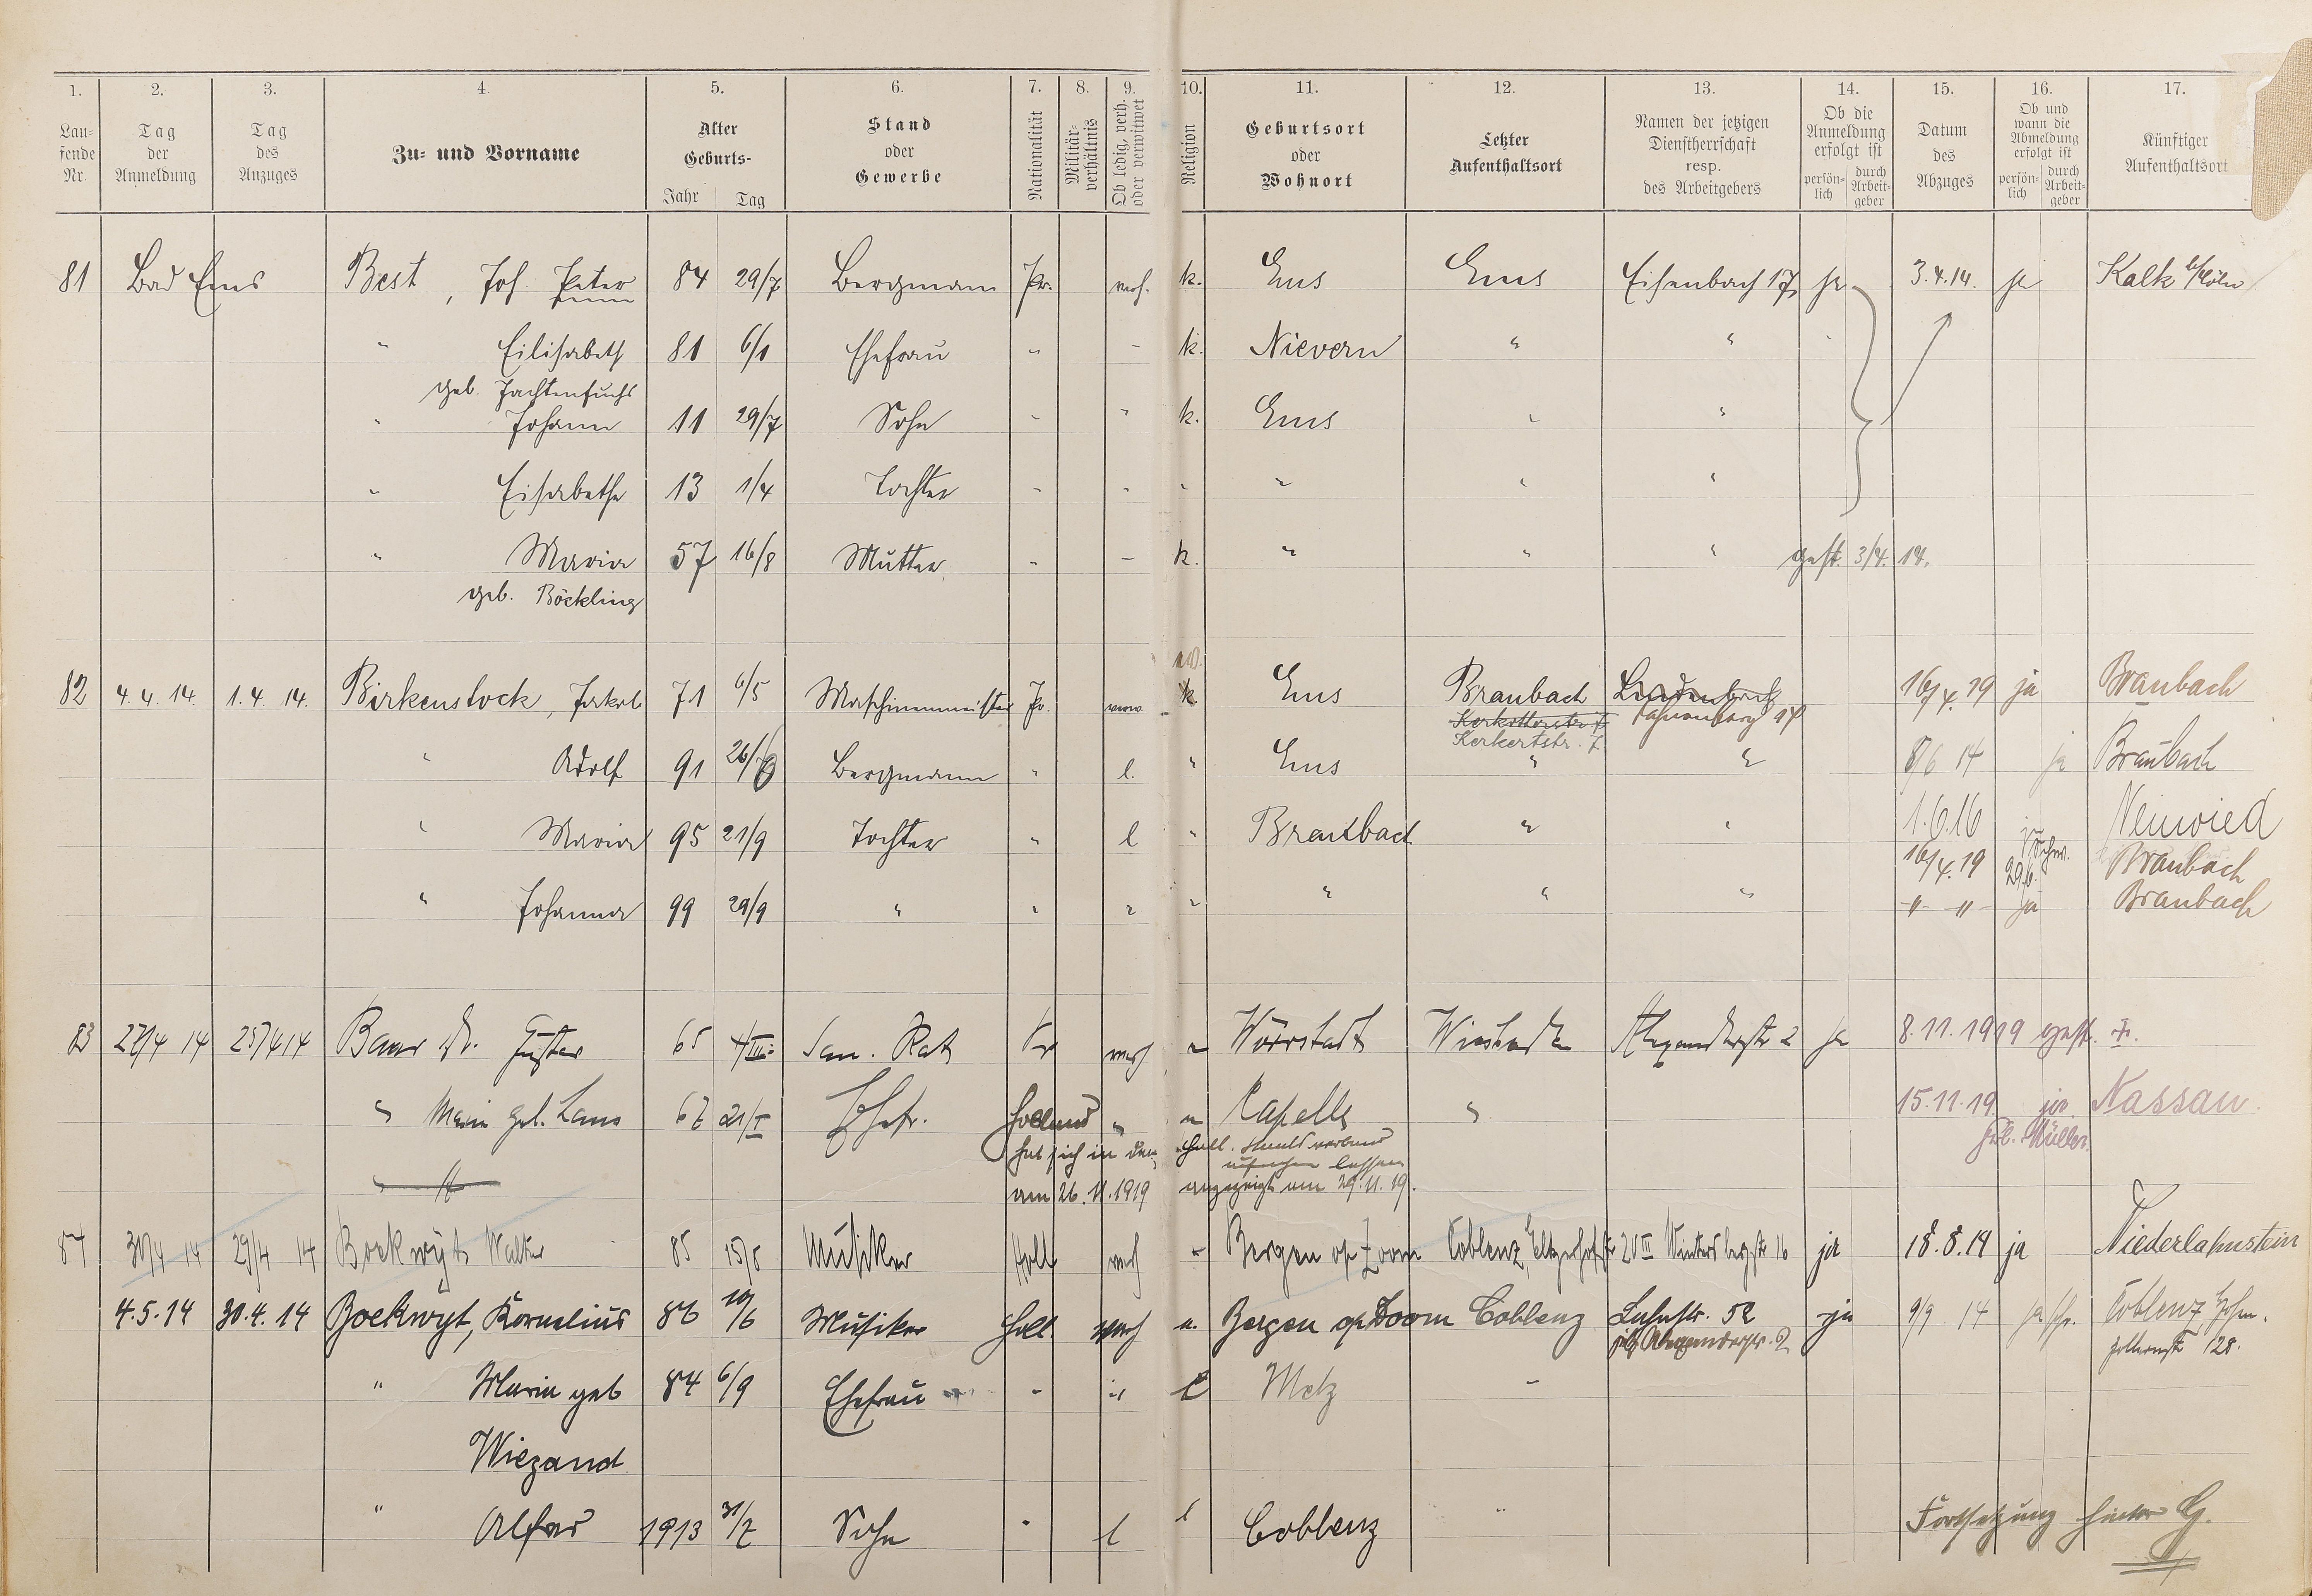 1. 2. 3. 4. 5. 6. 7. 8. 9. 10. 11. 12. 13. 14. 15. 16. 17.
Lau=
fende
Nr.
Tag
der
Anmeldung
Tag
des
Anzuges
Zu= und Vorname
Alter
Geburts-
Jahr Tag
Stand
oder
Gewerbe
Nationalität
Militär-
verhältnis
Ob ledig, verh.
oder verwitwet
Religion
Geburtsort
oder
Wohnort
Letzter
Aufenthaltsort
Namen der jetzigen
Dienstherrschaft
resp.
des Arbeitgebers
Ob die
Anmeldung
erfolgt ist
persön-
lich
durch
Arbeit-
geber
Datum
des
Abzuges
Ob und
wann die
Abmeldung
erfolgt ist
persön-
lich
durch
Arbeit-
geber
Künftiger
Aufenthaltsort
81 Bad Ems Best, Joh. Peter 84 29/7 Bergmann Pr. verh. k. Ems Ems Eisenbach 17 ja 3.4.14. ja Kalk b/Cöln
" Eilisabeth 81 6/1 Ehefrau " " k. Nievern " "
geb. Fachtenfuchs
" Johann 11 29/7 Sohn " " k. Ems " "
" Eisabetha 13 1/4 Tochter " " " " " "
" Maria 57 16/8 Mutter " " k. " " " gest. 3/4. 14.
geb. Böckling
82 4.4.14. 1.4.14. Birkenstock, Jakob 71 6/5 Maschinenmeister Pr. verw. k. Ems Braubach Lindenbach 16/4.19 ja Braubach
Kerkertstr. 7
" Adolf 91 26/6 Bergmann " l. " Ems " " 8/6 14 ja Braubach
" Maria 95 21/9 Tochter " l " Braubach " " 1.6.16 Neuwied
16/4.19 29/6. Braubach
" Johanna 99 29/9 " " " " " " " " " ja Braubach
83 27/4 14 25/4 14 Baar Dr. Gustav 65 4/III San. Rat Pr verh " Wörrstadt Wiesbaden Alexanderstr 2 ja 8.11.1919 gest.
" Maria geb. Lans 67 21/I Ehefr. Holland " " Capelle " 15.11.19. ja. Nassau.
Frl. Müller.
hat sich in den Holl. Staatsverband
am 26.11.1919 angezeigt am 29.11.19.
84 30/4 14 29/4 14 Boekwyt Walter 85 15/8 Musiker Holl verh " Bergen op Zoom Coblenz, 20 III Wintersbergstr 16 ja 18.8.14 ja Niederlahnstein
4.5.14 30.4.14 Boekwyt, Kornelius 86 10/6 Musiker Holl verh " Bergen op Zoom Coblenz Lahnstr. 52 ja 9/9 14 ja Coblenz Hohen.
jetzt Alexanderstr. 2 zollernstr 128.
" Maria geb 84 6/9 Ehefrau " " Metz "
Wiegand
" Alfred 1913 31/7 Sohn " l Coblenz "
Fortsetzung hinter G.